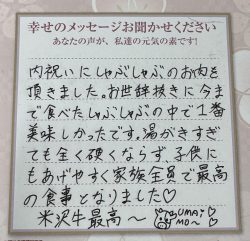 幸せのメッセージお聞かせください
あなたの声が、私達の元気の素です!
内祝いにしゃぶしゃぶのお肉を
頂きました。お世辞抜きに今ま
で食べたしゃぶしゃぶの中で1番
美味しかったです。湯がきすぎ
ても全く硬くならず、子供に
もあげやすく家族全員で最高
の食事となりました♡
米沢牛最高〜 UMAi♡
MO〜